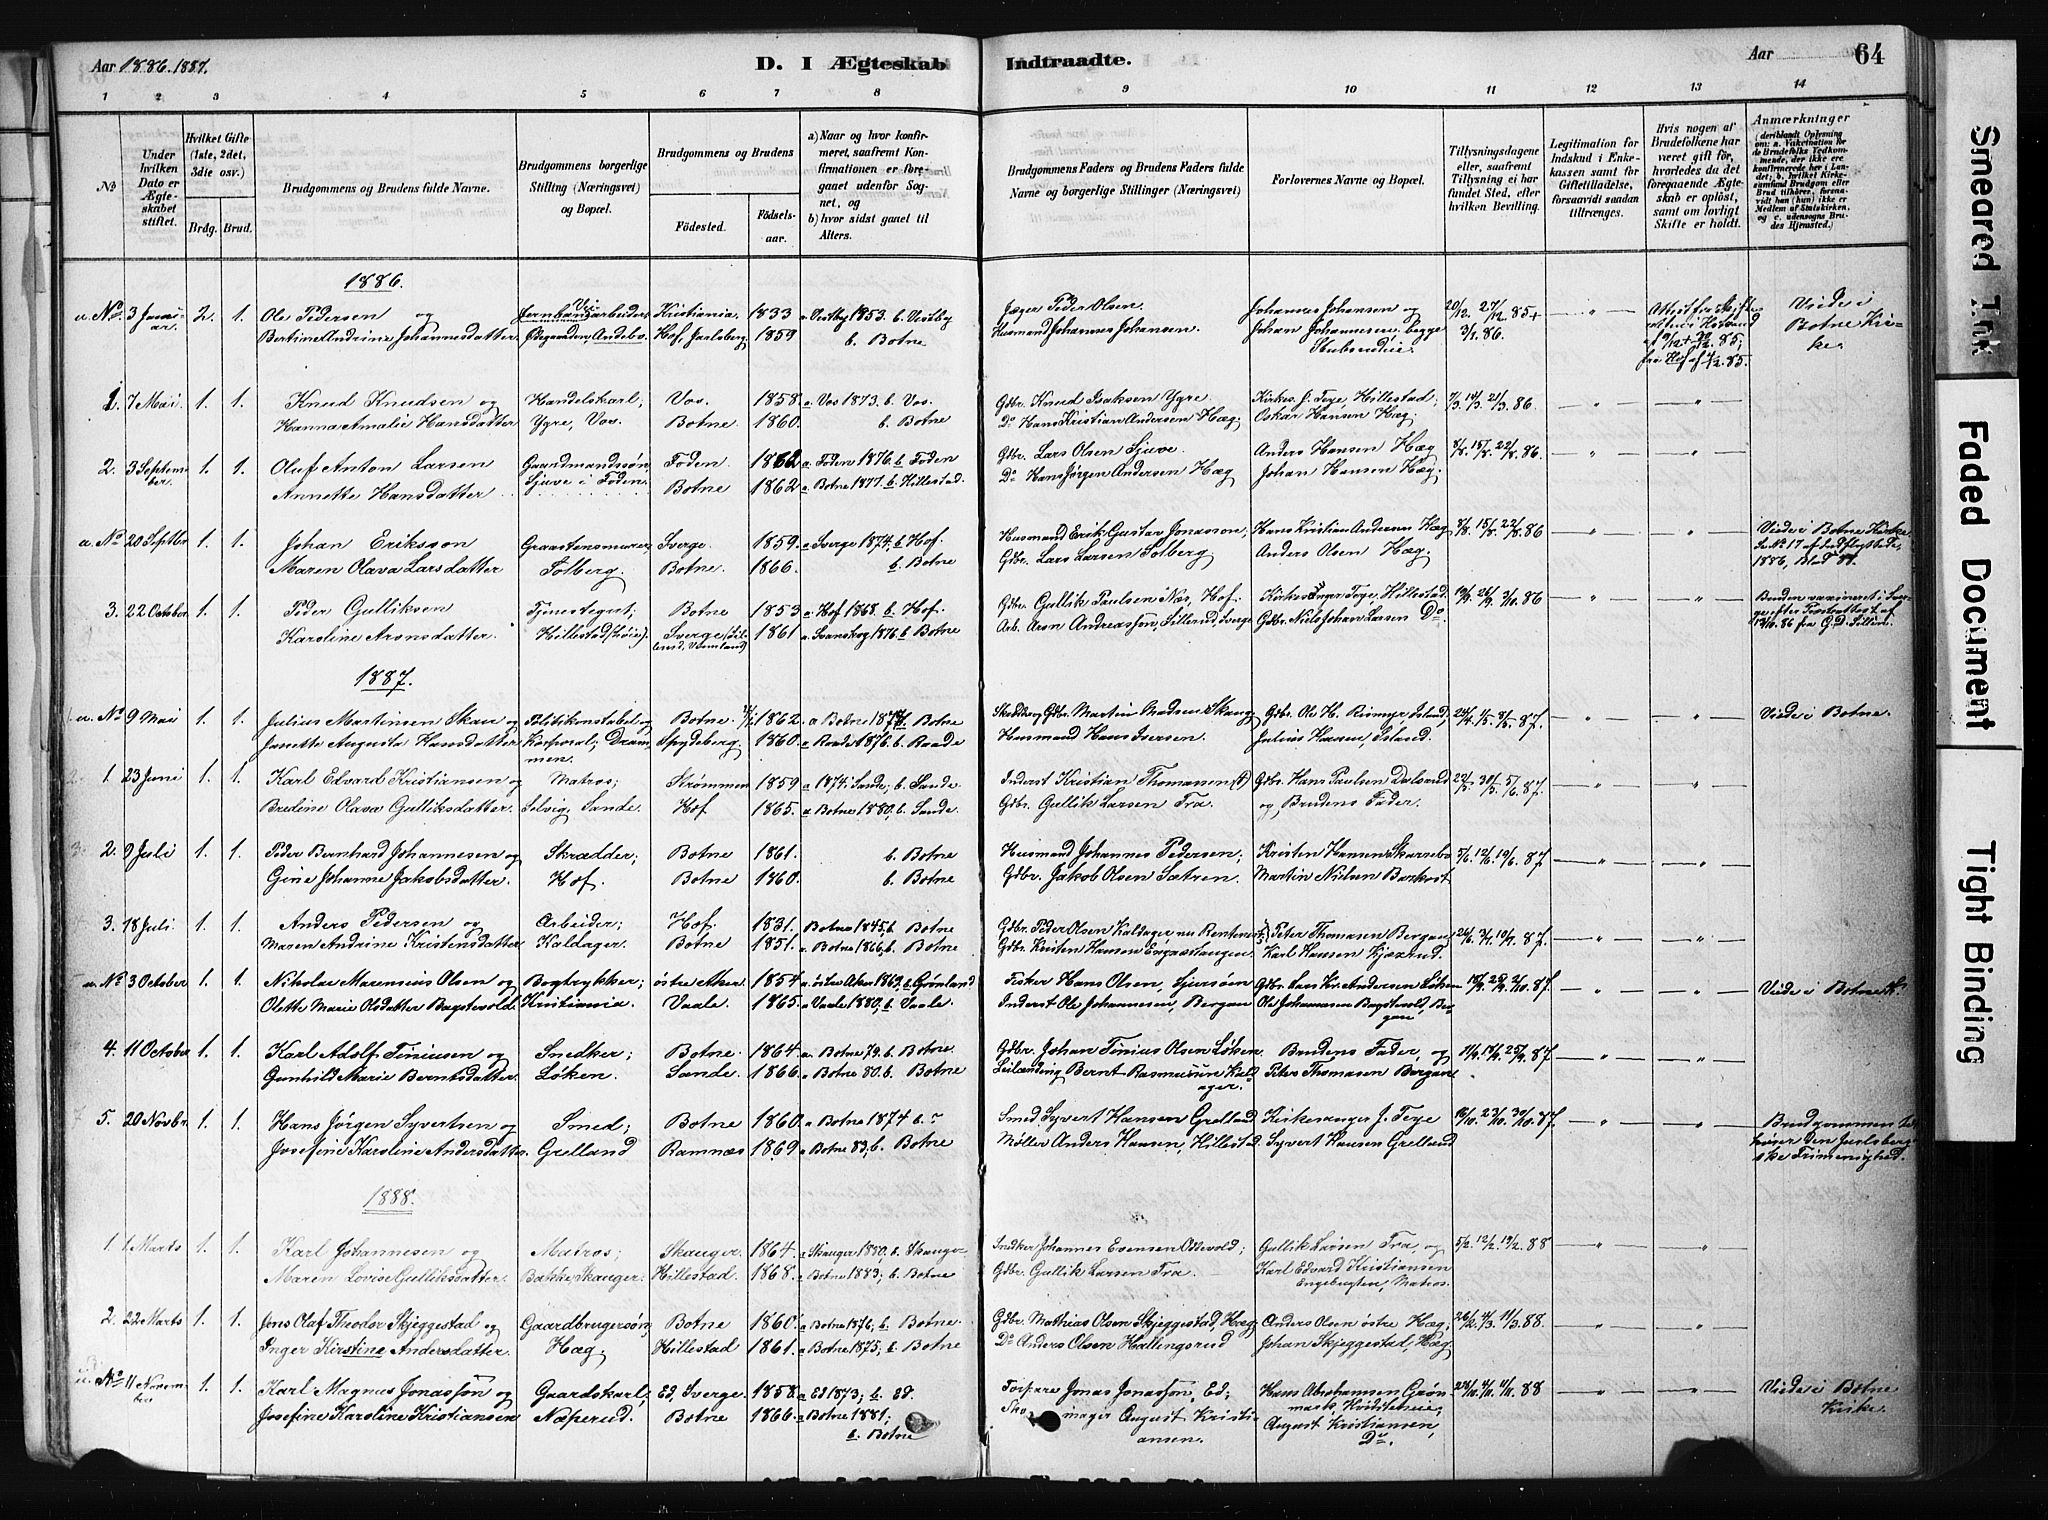 Aar 1886.1887.
D. I Ægteskab Indtraadte.
Aar
64
1 2 3 4 5 6 7 8 9 10 11 12 13 14
No
Under hvilken Dato er Ægteskabet stiftet.
Hvilket Gifte (1ste, 2det, 3die osv.)
Brdg. Brud.
Brudgommens og Brudens fulde Navne.
Brudgommens borgerlige Stilling (Næringsvei) og Bopæl.
Brudgommens og Brudens
Fødested. Fødselsaar.
a) Naar og hvor konfirmeret, saafremt Konfirmationen er foregaaet udenfor Sognet, og
b) hvor sidst gaaet til Alters.
Brudgommens Faders og Brudens Faders fulde Navne og borgerlige Stillinger (Næringsvei)
Forlovernes Navne og Bopæl.
Tillysningsdagene eller, saafremt Tillysning ei har fundet Sted, efter hvilken Bevilling.
Legitimation for Indskud i Enkekassen samt for Giftetilladelse, forsaavidt saadan tiltrænges.
Hvis nogen af Brudefolkene har været gift før, hvorledes da det foregaaende Ægteskab er opløst, samt om lovligt Skifte er holdt.
Anmærkninger
(deriblandt Oplysning om: a. Vakcination for de Brudefolks Vedkommende, der ikke ere konfirmerede her i Landet; b. hvilket Kirkesamfund Brudgom eller Brud tilhører, forsaavidt han (hun) ikke er Medlem af Statskirken, og c. udensogns Brudes Hjemsted.)
1886.
a. No. 3 Januar. 2. 1. Ole Pedersen og Jernbanearbeider Kristiania. 1833 a Vestby 1853. b. Vestby Jæger Peder Olsen. Johannes Johansen og 20/12. 27/12. 85+ „ Viede i
Bertine Andrine Johannesdatter. Østgaarden, Andebo. Hof, Jarlsberg. 1859 b. Botne Husmand Johannes Johansen. Johan Johannesen, begge 3/1. 86. Botne Kirke.
1. 7 Mai 1. 1. Knud Knudsen og Handelskarl; Vos. 1858. a. Vos 1873. b. Vos. Gdbr. Knud Isaksen Ygre Kirkes. J. Teye, Hillestad; 7/3. 14/3. 21/3. 86. „ „
Hanna Amalie Hansdatter Ygre, Vos. Botne 1860. b. Botne Do Hans Kristian Andersen Hæg; Oskar Hansen Hæg.
2. 3 September 1. 1. Oluf Anton Larsen Gaardmandssøn, Foden. 1862 a. Foden 1876. b. Foden Gdbr. Lars Olsen Sjuve. Anders Hansen Hæg 8/8. 15/8. 22/8. 86. „ „
Annette Hansdatter Sjuve i Foden. Botne 1862 a. Botne 1877. b. Hillestad. Do Hans Jørgen Andersen Hæg Johan Hansen Hæg.
a. No 20 Septbr. 1. 1. Johan Eriksson Graastensmurer Sverge. 1859. a. Sverge 1874. b. Hof. Husmand Erik Gustav Jonasson, Hans Kristian Andersen Hæg 8/8. 15/8. 22/8. 86 „ „ Viede i Botne Kirke
Maren Olava Larsdatter Solberg. Botne 1866. b. Botne Gdbr. Lars Larsen Solberg Anders Olsen Hæg. Se No 17 af Indflyttede, 1886,
3. 22 October. 1. 1. Peder Gulliksen Tjenestegut; Botne 1853 a. Hof 1868. b. Hof. Gdbr. Gullik Paulsen Næs, Hof. Kirkesanger Teye, Hillestad. 19/9. 26/9. 3/10. 86 „ „ Bruden vaccineret i Sverge efter Præsteattest af
Karoline Aronsdatter. Hillestad Sverge 1861 a. Svanskog 1876 b. Botne Arb. Aron Andreassen, Sillerud, Sverge Gdbr. Niels Johan Larsen Do. 12/10. 86 fra G. D.
1887.
a. No 9 Mai 1. 1. Julius Martinsen Skau og Politikonstabel og Botne 1862. a Botne 1877. b. Botne Gdbr. Martin Madsen Skaug Gdbr. Ole H. Rismyr, Island, 24/4. 1/5. 8/5. 87. „ „ Viede i Botne.
Janette Augusta Hansdatter. Korporal; Drammen. Spydeberg. 1860. a. Raade 1876. b. Raade Husmand Hans Iversen. Julius Hansen, Island.
1. 23 Juni 1. 1. Karl Edvard Kristiansen og Matros; Strømmen 1859 a. 1874 i Sande; b. Sande Inderst Kristian Thomasen (†) Gdbr. Hans Paulsen Dalsrud 22/5. 30/5. 5/6. 87. „ „
Bredine Olava Gulliksdatter. Selvig, Sande. Hof 1865. a Botne 1880. b. Sande. Gdbr. Gullik Larsen Fra. og Brudens Fader.
2. 9 Juli 1. 1. Peder Bernhard Johannesen og Skrædder; Botne 1861. b. Botne Husmand Johannes Pedersen; Kristen Hansen Skarrebo 5/6. 12/6. 19/6. 87 „ „
Gine Johanne Jakobsdatter. Hof. Botne 1860. b. Botne Gdbr. Jakob Olsen Sætren. Martin Nielsen Bankost
3. 18 Juli. 1. 1. Anders Pedersen og Arbeider; Hof. 1831. Botne 1845, b. Botne Gdbr. Peder Olsen Kaldager nu Rentenist; Peter Thomasen Bergan 26/6. 3/7. 10/7. 87. „ „
Maren Andrine Kristensdatter Kaldager. Botne 1851. a Botne 1866, b. Botne Gdbr. Kristen Hansen Karl Hansen Kjærud.
a. No 3 October 1. 1. Nikolai Marensius Olsen og Bogtrykker; østre Aker. 1854 a. østre Aker 1869. b. Grønland Fisker Hans Olsen, Gdbr. Lars Kr. Andersen Løken 18/9. 25/9. 2/10. 87. „ „ Viede i Botne K.
Olette Marie Olsdatter Bagstevold. Kristiania. Vaale. 1865. a Vaale 1880. b. Vaale. Inderst Ole Johannesen, Bergan Ole Johannesen Bagstvold, Bergan.
4. 11 October 1. 1. Karl Adolf Tiniusen og Snedker; Botne. 1864. a. Botne 79. b. Botne Gdbr. Johan Tinius Olsen Løken. Brudens Fader, og 11/9. 17/9. 25/9. 87 „ „
Gunhild Marie Berntsdatter. Løken. Sande 1866. a Botne 80. b. Botne Leilænding Bernt Rasmussen Kaldager. Peter Thomasen Bergan
5. 20 Novbr. 1. 1. Hans Jørgen Syvertsen og Smed; Botne 1860. a Botne 1874 b. ? Smed Syvert Hansen Grelland Kirkesanger J. Teye 16/10. 23/10. 30/10. 87. „ „ Brudgommen tilhører den Jarlsbergske Frimenighed.
Josefine Karoline Andersdatter. Grelland Ramnæs 1869 a Botne 83, b. Botne Møller Anders Hansen, Hillestad Syvert Hansen Grelland
1888.
1. 1 Marts 1. 1. Karl Johannesen og Matros; Skauger. 1864. a Skauger 1880, b. Skauger. Snedker Johannes Evensen Oddevold; Gullik Larsen Fra, og 5/2. 12/2. 19/2. 88 „ „
Maren Lovise Gulliksdatter. Bakke, Skauger. Hillestad. 1868. a Botne 1883; b. Botne Gdbr. Gullik Larsen Fra. Karl Edvard Kristiansen Engebregtsen, Matros.
2. 22 Marts 1. 1. Jens Olaf Theodor Skjeggestad og Gaardbrugersøn; Botne 1860. a Botne 1876, b. Botne. Gdbr. Mathias Olsen Skjeggestad, Hæg Anders Olsen østre Hæg; 26/2. 4/3. 11/3. 88. „ „
Inger Kirstine Andersdatter. Hæg. Hillestad 1861. a Botne 1875; b. Botne Do Anders Olsen Hallingsrud Johan Skjeggestad, Hæg
a. No 11 November 1. 1. Karl Magnus Jonasson og Gaardskarl; Ed, Sverge. 1858. a Ed 1873; b. Ed. Torpare Jonas Jonasson, Ed; Hans Abrahamsen 28/10. 4/11. 11/11. 88 „ „ Viede i Botne Kirke.
Josefine Karoline Kristiansen Næperud. Botne 1866 a Botne 1881; b. Botne Skomager August Kristiansen. August Kristiansen, Do.
Smeared Ink
Faded Document
Tight Binding